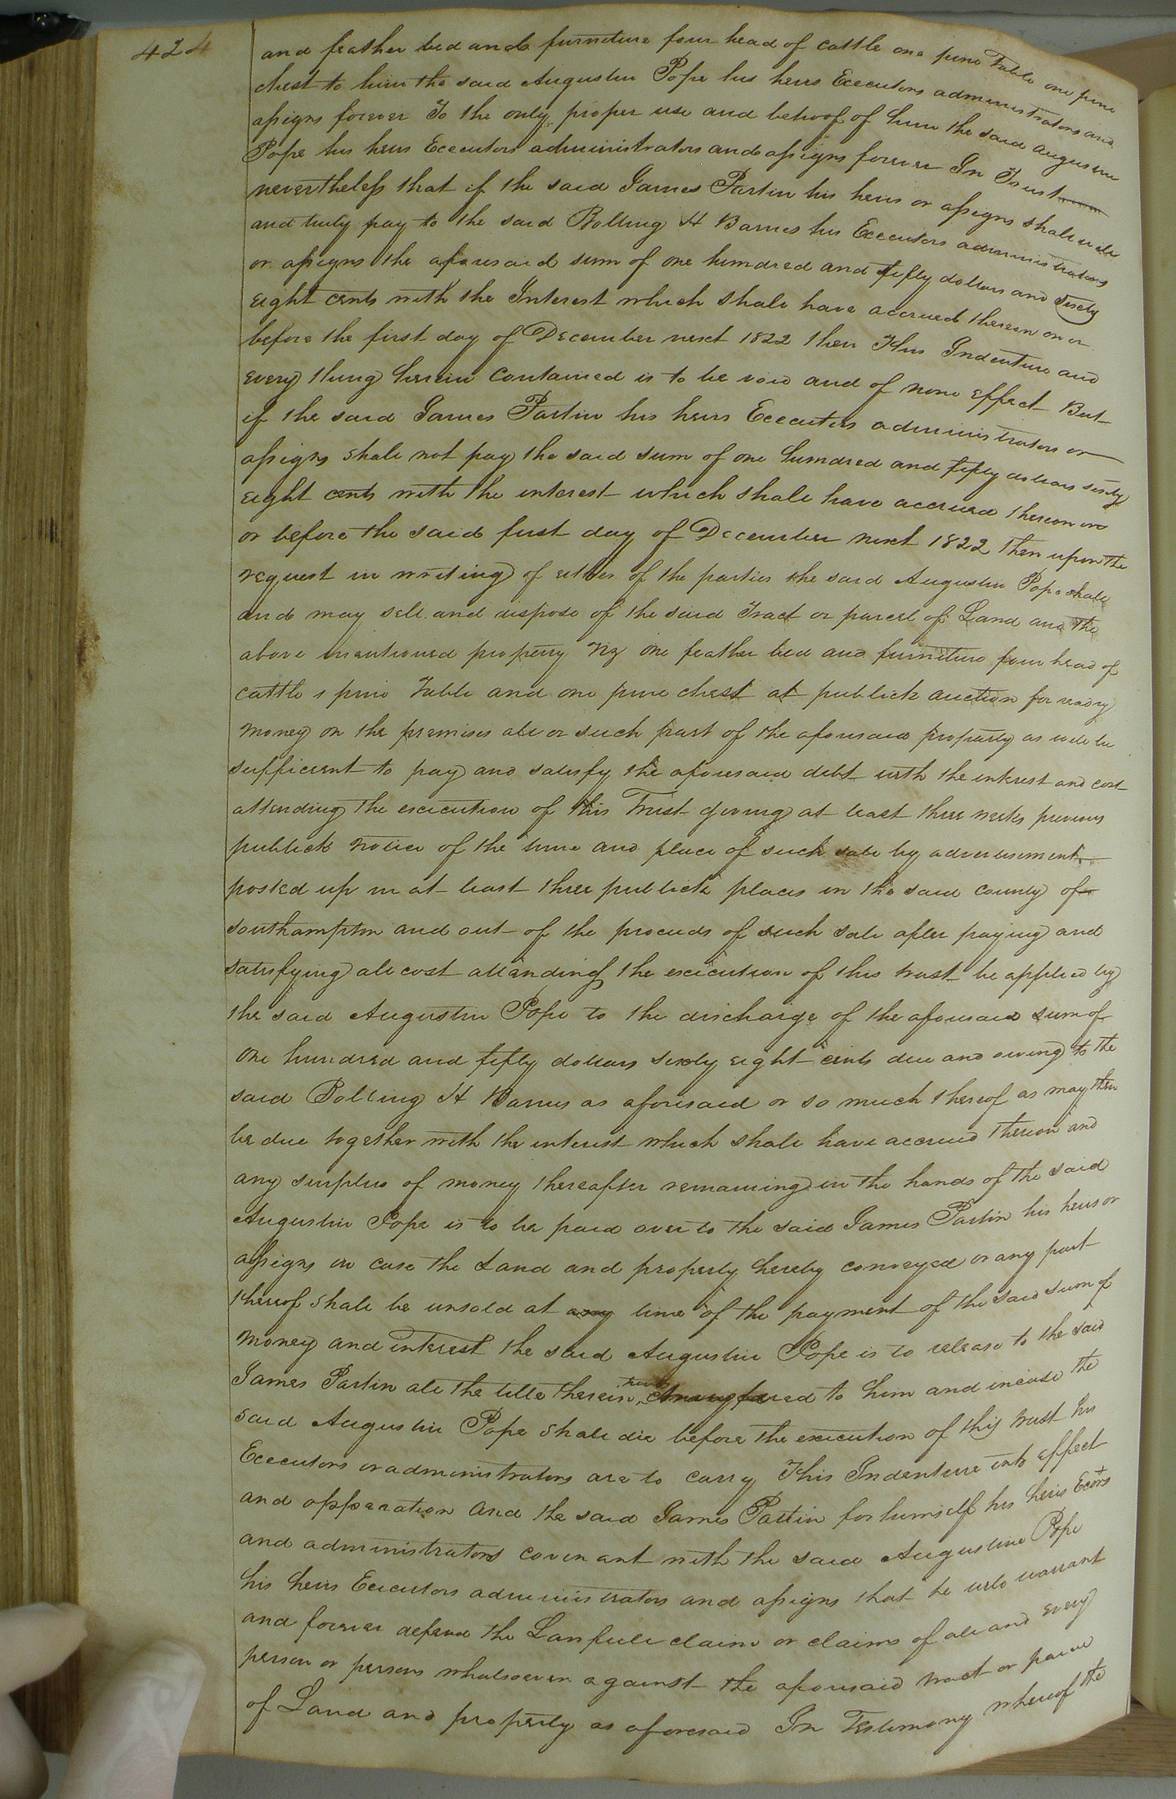 424
and feather bed and furniture four head of cattle one pine Table one pine
chest to him the said Augustin Pope his heirs Executors administrators and
assigns forever To the only proper use and behoof of him the said Augustin
Pope his heirs Executors administrators and assigns forever In Trust
nevertheless that if the said James Partin his heirs or assigns shall well
and truly pay to the said Bolling H Barnes his Executors administrators
or assigns the aforesaid sum of one hundred and fifty dollars and sixty
eight cents with the Interest which shall have accrued thereon on or
before the first day of December next 1822 then This Indenture and
every thing herein contained is to be void and of none effect But
if the said James Partin his heirs Executors administrators or
assigns shall not pay the said sum of one hundred and fifty dollars sixty
eight cents with the interest which shall have accrued thereon on
or before the said first day of December next 1822 then upon the
request in writing of either of the parties the said Augustin Pope shall
and may sell and dispose of the said Tract or parcel of Land and the
above mentioned property viz one feather bed and furniture four head of
cattle 1 pine Table and one pine chest at publick auction for ready
money on the premises all or such part of the aforesaid property as will be
sufficient to pay and satisfy the aforesaid debt with the interest and cost
attending the excicution of this Trust giving at least three weeks previous
publick notice of the time and place of such sale by advertisement
posted up in at least three publick places in the said county of
Southampton and out of the proceeds of such sale after paying and
satisfying all cost attending the excicution of this trust be applied by
the said Augustin Pope to the discharge of the aforesaid sum of
one hundred and fifty dollars sixty eight cents due and owing to the
said Bolling H Barnes as aforesaid or so much thereof as may then
be due together with the interest which shall have accrued thereon and
any surplus of money thereafter remaining in the hands of the said
Augustin Pope is to be paid over to the said James Partin his heirs or
assigns in case the Land and property hereby conveyed or any part
thereof shall be unsold at any time of the payment of the said sum of
money and interest the said Augustin Pope is to release to the said
James Partin all the title therein to him and incase the
said Augustin Pope shall die before the execution of this trust his
Executors or administrators are to carry This Indenture into effect
and opperation and the said James Partin for himself his heirs Exors
and administrators covenant with the said Augustine Pope
his heirs Executors administrators and assigns that he will warrant
and forever defend the Lanfull claim or claims of all and every
person or persons whatsoever against the aforesaid tract or parcel
of Land and property as aforesaid In Testimony whereof the